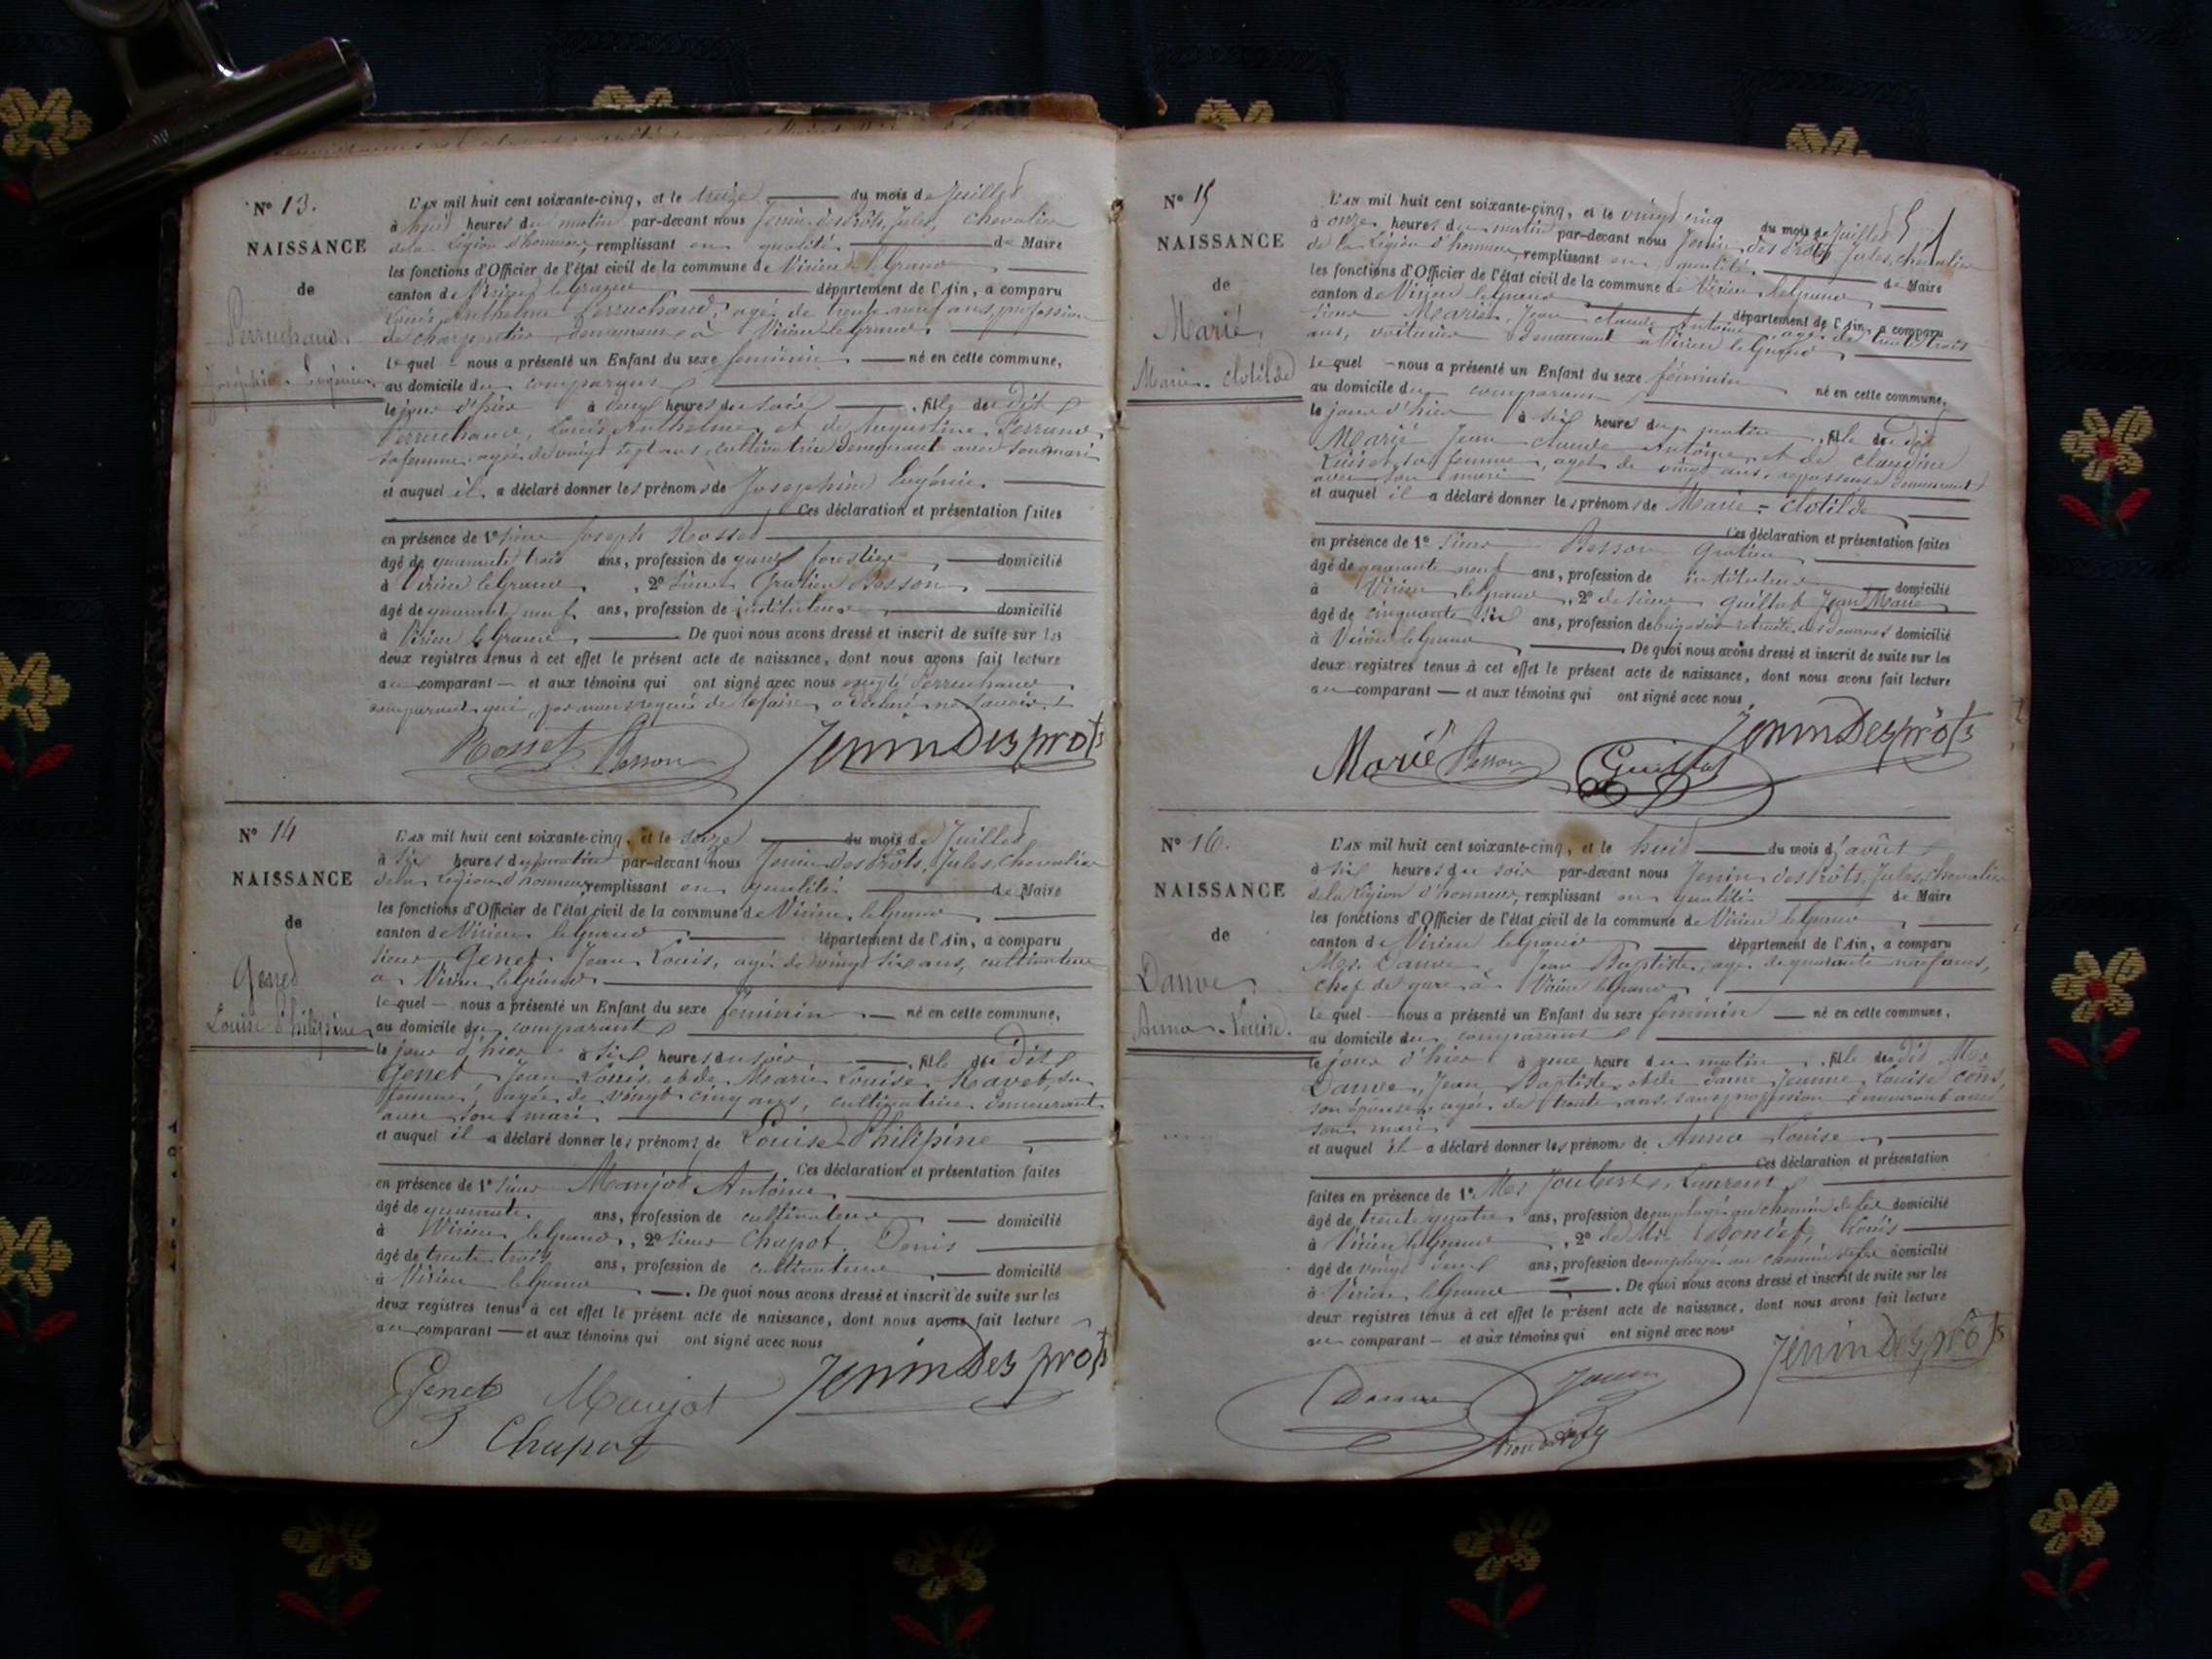 N° 13.
NAISSANCE
de
Perruchaud
Joséphine Eugénie
L'an mil huit cent soixante-cinq, et le treize du mois de Juillet
à huit heures du matin par-devant nous Jenin des Prôts, Jules, chevalier
de la Légion d'honneur, remplissant en qualité de Maire
les fonctions d'Officier de l'état civil de la commune de Virieu le Grand
canton de Virieu le Grand département de l'Ain, a comparu
Louis Anthelme Perruchaud, agé de trente neuf ans, profession
de charpentier demeurant à Virieu le Grand.
lequel nous a présenté un Enfant du sexe féminin né en cette commune,
au domicile du comparant
le jour d'hier à heures du soir, fille du dit
Perruchaud, Louis Anthelme et de Augustine Perrand
sa femme agée de vingt sept ans, cultivatrice demeurant avec son mari
et auquel il a déclaré donner les prénoms de Josephine Eugénie.
Ces déclaration et présentation faites
en présence de 1° sieur Joseph Rosset
âgé de quarante trois ans, profession de garde forestier, domicilié
à Virieu le Grand, 2° sieur Gratien Besson
âgé de quarante neuf ans, profession de instituteur domicilié
à Virieu le Grand. De quoi nous avons dressé et inscrit de suite sur les
deux registres tenus à cet effet le présent acte de naissance, dont nous avons fait lecture
au comparant et aux témoins qui ont signé avec nous excepté Perruchaud
comparant qui, par nous requis de le faire, a déclaré ne savoir.
Rosset Besson Jenin Des prôts
N° 14
NAISSANCE
de
Genet
Louise Philipine
L'an mil huit cent soixante-cinq, et le seize du mois de Juillet
à six heures du matin par-devant nous Jenin des Prôts, Jules, chevalier
de la Légion d'honneur, remplissant en qualité de Maire
les fonctions d'Officier de l'état civil de la commune de Virieu le Grand
canton de Virieu le Grand département de l'Ain, a comparu
sieur Genet Jean Louis, agé de vingt six ans, cultivateur
a Virieu le Grand.
lequel nous a présenté un Enfant du sexe féminin né en cette commune,
au domicile du comparant
le jour d'hier à six heures du soir, fille du dit
Genet, Jean Louis et de Marie Louise Ravet, sa
femme, agée de vingt cinq ans, cultivatrice demeurant
avec son mari
et auquel il a déclaré donner les prénoms de Louise Philipine
Ces déclaration et présentation faites
en présence de 1° sieur Manjot Antoine
âgé de quarante ans, profession de cultivateur domicilié
à Virieu le Grand, 2° sieur Chapot Denis
âgé de trente trois ans, profession de cultivateur domicilié
à Virieu le Grand. De quoi nous avons dressé et inscrit de suite sur les
deux registres tenus à cet effet le présent acte de naissance, dont nous avons fait lecture
au comparant et aux témoins qui ont signé avec nous
Genet Manjot Jenin Des prôts
Chapot
N° 15
NAISSANCE
de
Marié
Marie-Clotilde
51
L'an mil huit cent soixante-cinq, et le vingt cinq du mois de Juillet
à onze heures du matin par-devant nous Jenin des Prôts Jules, chevalier
de la Légion d'honneur, remplissant en qualité de Maire
les fonctions d'Officier de l'état civil de la commune de Virieu le Grand
canton de Virieu le Grand département de l'Ain, a comparu
sieur Marié, Jean claude Antoine agé de trente trois
ans, voiturier demeurant a Virieu le Grand
lequel nous a présenté un Enfant du sexe féminin né en cette commune,
au domicile du comparant
le jour d'hier à six heure du matin, fille du dit
Marié Jean claude Antoine et de claudine
sa femme, agée de vingt ans, repasseuse demeurant
avec son mari
et auquel il a déclaré donner les prénoms de Marie-clotilde
Ces déclaration et présentation faites
en présence de 1° sieur Besson Gratien
âgé de quarante neuf ans, profession de instituteur domicilié
à Virieu le Grand, 2° de sieur Guillot Jean Marie
âgé de cinquante six ans, profession de brigadier retraité des douanes domicilié
à Virieu le Grand. De quoi nous avons dressé et inscrit de suite sur les
deux registres tenus à cet effet le présent acte de naissance, dont nous avons fait lecture
au comparant et aux témoins qui ont signé avec nous
Marié Besson Guillot Jenin Des prôts
N° 16.
NAISSANCE
de
Danve
Anna-Louise.
L'an mil huit cent soixante-cinq, et le huit du mois d'août
à six heures du soir par-devant nous Jenin des Prôts, Jules, chevalier
de la Légion d'honneur, remplissant en qualité de Maire
les fonctions d'Officier de l'état civil de la commune de Virieu le Grand
canton de Virieu le Grand département de l'Ain, a comparu
Mr. Danve, Jean Baptiste, agé de quarante neuf ans,
chef de gare à Virieu le Grand
lequel nous a présenté un Enfant du sexe féminin né en cette commune,
au domicile du comparant
le jour d'hier à une heure du matin, fille du dit Mr
Danve, Jean Baptiste et de dame Jeanne Louise
son épouse agée de trente ans, sans profession demeurant avec
son mari
et auquel il a déclaré donner les prénoms de Anna Louise
Ces déclaration et présentation
faites en présence de 1° Mr Joubert, Laurent
âgé de trente quatre ans, profession de employé au chemin de fer domicilié
à Virieu le Grand, 2° de Mr Louis
âgé de vingt ans, profession de employé au chemin de fer domicilié
à Virieu le Grand. De quoi nous avons dressé et inscrit de suite sur les
deux registres tenus à cet effet le présent acte de naissance, dont nous avons fait lecture
au comparant et aux témoins qui ont signé avec nous
Danve Jenin Des prôts